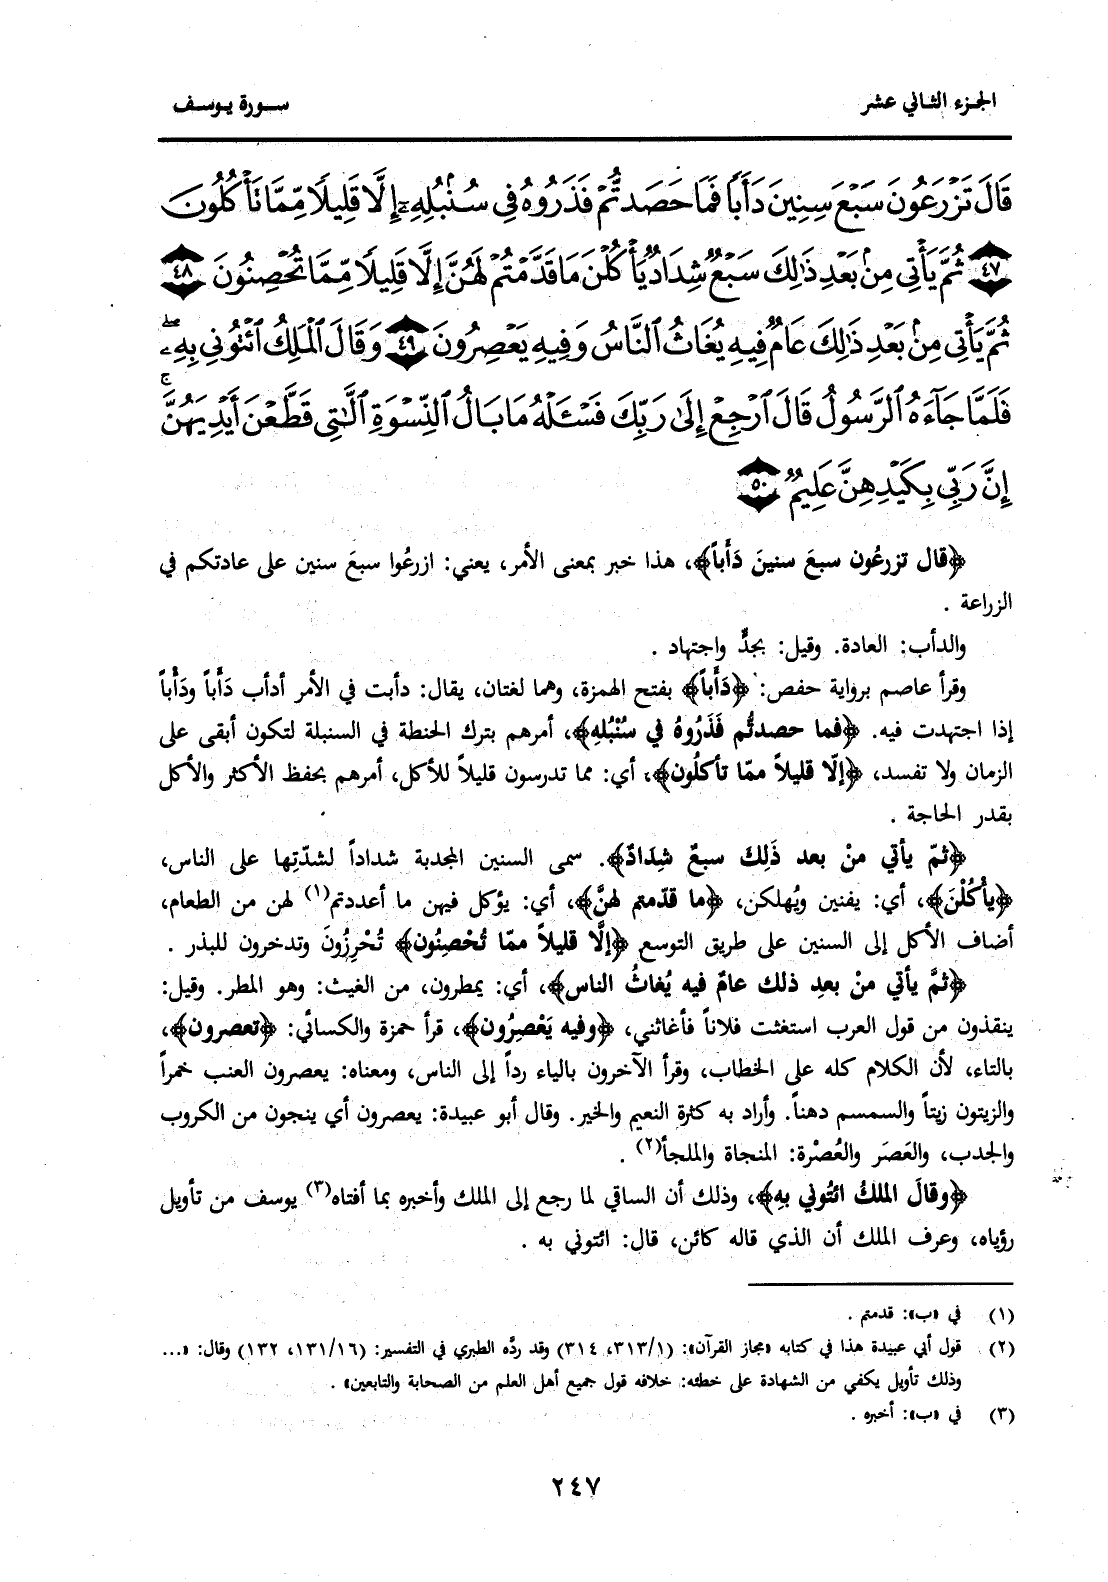 الجزء الثاني عشر
سورة يوسف
قَالَ تَزْرَعُونَ سَبْعَ سِنِينَ دَأَبًا فَمَا حَصَدتُّمْ فَذَرُوهُ فِي سُنۢبُلِهِۦٓ إِلَّا قَلِيلًا مِّمَّا تَأْكُلُونَ
٤٧ ثُمَّ يَأْتِي مِنۢ بَعْدِ ذَٰلِكَ سَبْعٌ شِدَادٌ يَأْكُلْنَ مَا قَدَّمْتُمْ لَهُنَّ إِلَّا قَلِيلًا مِّمَّا تُحْصِنُونَ ٤٨
ثُمَّ يَأْتِي مِنۢ بَعْدِ ذَٰلِكَ عَامٌ فِيهِ يُغَاثُ ٱلنَّاسُ وَفِيهِ يَعْصِرُونَ ٤٩ وَقَالَ ٱلْمَلِكُ ٱئْتُونِي بِهِۦۖ
فَلَمَّا جَآءَهُ ٱلرَّسُولُ قَالَ ٱرْجِعْ إِلَىٰ رَبِّكَ فَسْـَٔلْهُ مَا بَالُ ٱلنِّسْوَةِ ٱلَّٰتِي قَطَّعْنَ أَيْدِيَهُنَّۚ
إِنَّ رَبِّي بِكَيْدِهِنَّ عَلِيمٌ ٥٠
﴿قال تزرعُون سبعَ سنينَ دَأَباً﴾، هذا خبر بمعنى الأمر، يعني: ازرعُوا سبعَ سنين على عادتكم في
الزراعة .
والدأب: العادة. وقيل: بجدٍّ واجتهاد .
وقرأ عاصم برواية حفص: ﴿دَأَباً﴾ بفتح الهمزة، وهما لغتان، يقال: دأبت في الأمر أدأب دَأْباً ودَأَباً
إذا اجتهدت فيه. ﴿فما حصدتُّم فَذَرُوهُ في سُنْبُلهِ﴾، أمرهم بترك الحنطة في السنبلة لتكون أبقى على
الزمان ولا تفسد، ﴿إلّا قليلاً ممّا تأكلُون﴾، أي: مما تدرسون قليلاً للأكل، أمرهم بحفظ الأكثر والأكل
بقدر الحاجة .
﴿ثمّ يأتي منْ بعد ذَلِكَ سبعٌ شِدَادٌ﴾. سمى السنين المجدبة شداداً لشدّتِها على الناس،
﴿يأْكُلْنَ﴾، أي: يفنين ويُهلكن، ﴿ما قدّمتم لهنَّ﴾، أي: يؤكل فيهن ما أعددتم(١) لهن من الطعام،
أضاف الأكل إلى السنين على طريق التوسع ﴿إلَّا قليلاً ممّا تُحْصِنُون﴾ تُحْرِزُونَ وتدخرون للبذر .
﴿ثمَّ يأتي منْ بعدِ ذلك عامٌ فيه يُغاثُ الناس﴾، أي: يمطرون، من الغيث: وهو المطر. وقيل:
ينقذون من قول العرب استغثت فلاناً فأغاثني، ﴿وفيه يَعْصِرُون﴾، قرأ حمزة والكسائي: ﴿تعصرون﴾،
بالتاء، لأن الكلام كله على الخطاب، وقرأ الآخرون بالياء رداً إلى الناس، ومعناه: يعصرون العنب خمراً
والزيتون زيتاً والسمسم دهناً. وأراد به كثرة النعيم والخير. وقال أبو عبيدة: يعصرون أي ينجون من الكروب
والجدب، والعَصَر والعُصْرة: المنجاة والملجأ(٢) .
﴿وقالَ الملكُ ائتُوني بهِ﴾، وذلك أن الساقي لما رجع إلى الملك وأخبره بما أفتاه(٣) يوسف من تأويل
رؤياه، وعرف الملك أن الذي قاله كائن، قال: ائتوني به .
(١) في «ب»: قدمتم .
(٢) قول أبي عبيدة هذا في كتابه «مجاز القرآن»: (٣١٣/١، ٣١٤) وقد ردَّه الطبري في التفسير: (١٣١/١٦، ١٣٢) وقال: «...
وذلك تأويل يكفي من الشهادة على خطئه: خلافه قول جميع أهل العلم من الصحابة والتابعين» .
(٣) في «ب»: أخبره .
٢٤٧